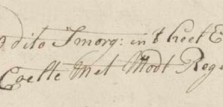 dito Smorg: in t heet E
Coelte met Modt Reg